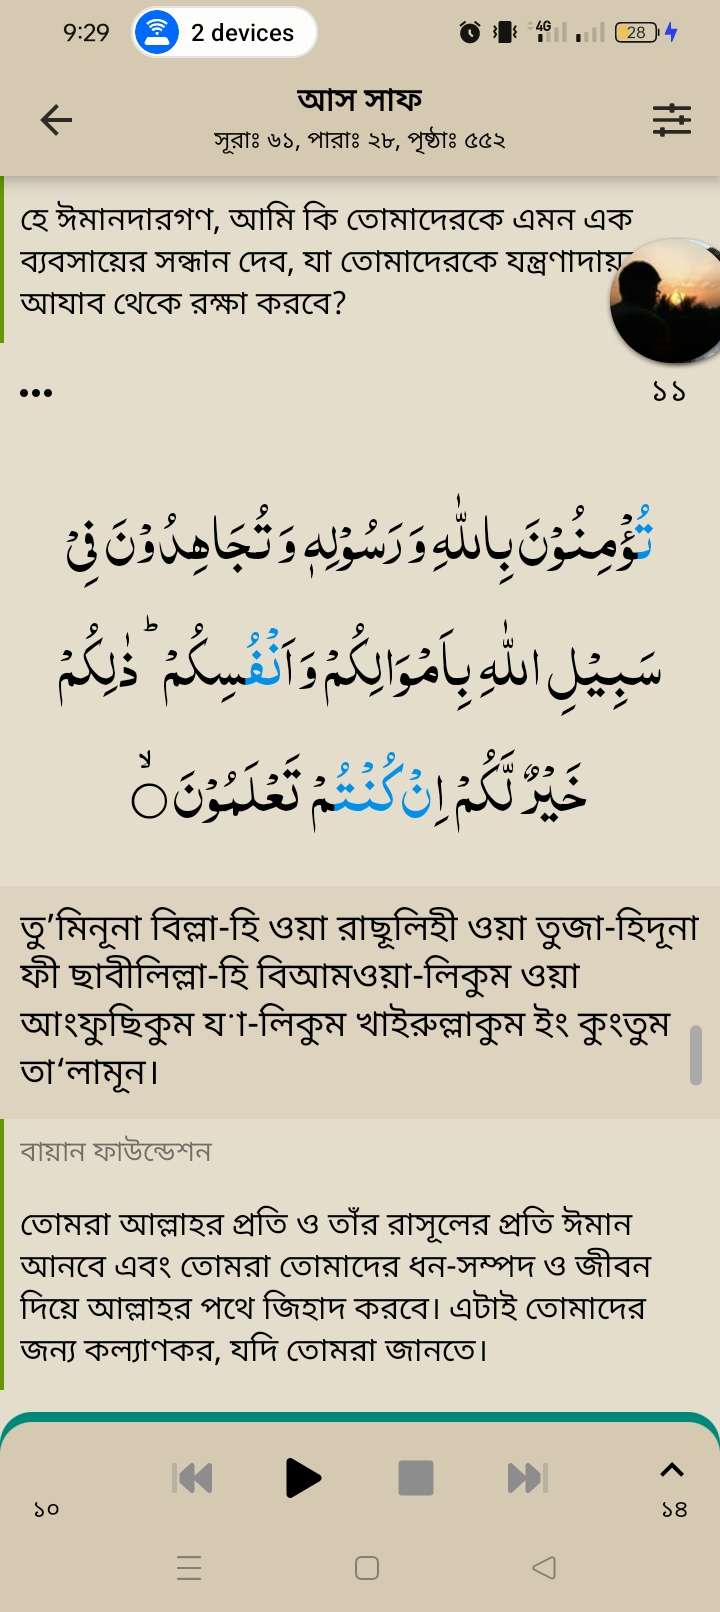 9:29
2 devices
4G
28
আস সাফ
সূরাঃ ৬১, পারাঃ ২৮, পৃষ্ঠাঃ ৫৫২
হে ঈমানদারগণ, আমি কি তোমাদেরকে এমন এক
ব্যবসায়ের সন্ধান দেব, যা তোমাদেরকে
আযাব থেকে রক্ষা করবে?
১১
تُؤْمِنُوْنَ بِاللّٰهِ وَرَسُوْلِهٖ وَتُجَاهِدُوْنَ فِيْ
سَبِيْلِ اللّٰهِ بِاَمْوَالِكُمْ وَاَنْفُسِكُمْ ؕ ذٰلِكُمْ
خَيْرٌ لَّكُمْ اِنْ كُنْتُمْ تَعْلَمُوْنَ ۙ
তু’মিনূনা বিল্লা-হি ওয়া রাছূলিহী ওয়া তুজা-হিদূনা
ফী ছাবীলিল্লা-হি বিআমওয়া-লিকুম ওয়া
আংফুছিকুম য া-লিকুম খাইরুল্লাকুম ইং কুংতুম
তা‘লামূন।
বায়ান ফাউন্ডেশন
তোমরা আল্লাহর প্রতি ও তাঁর রাসূলের প্রতি ঈমান
আনবে এবং তোমরা তোমাদের ধন-সম্পদ ও জীবন
দিয়ে আল্লাহর পথে জিহাদ করবে। এটাই তোমাদের
জন্য কল্যাণকর, যদি তোমরা জানতে।
১০
১৪